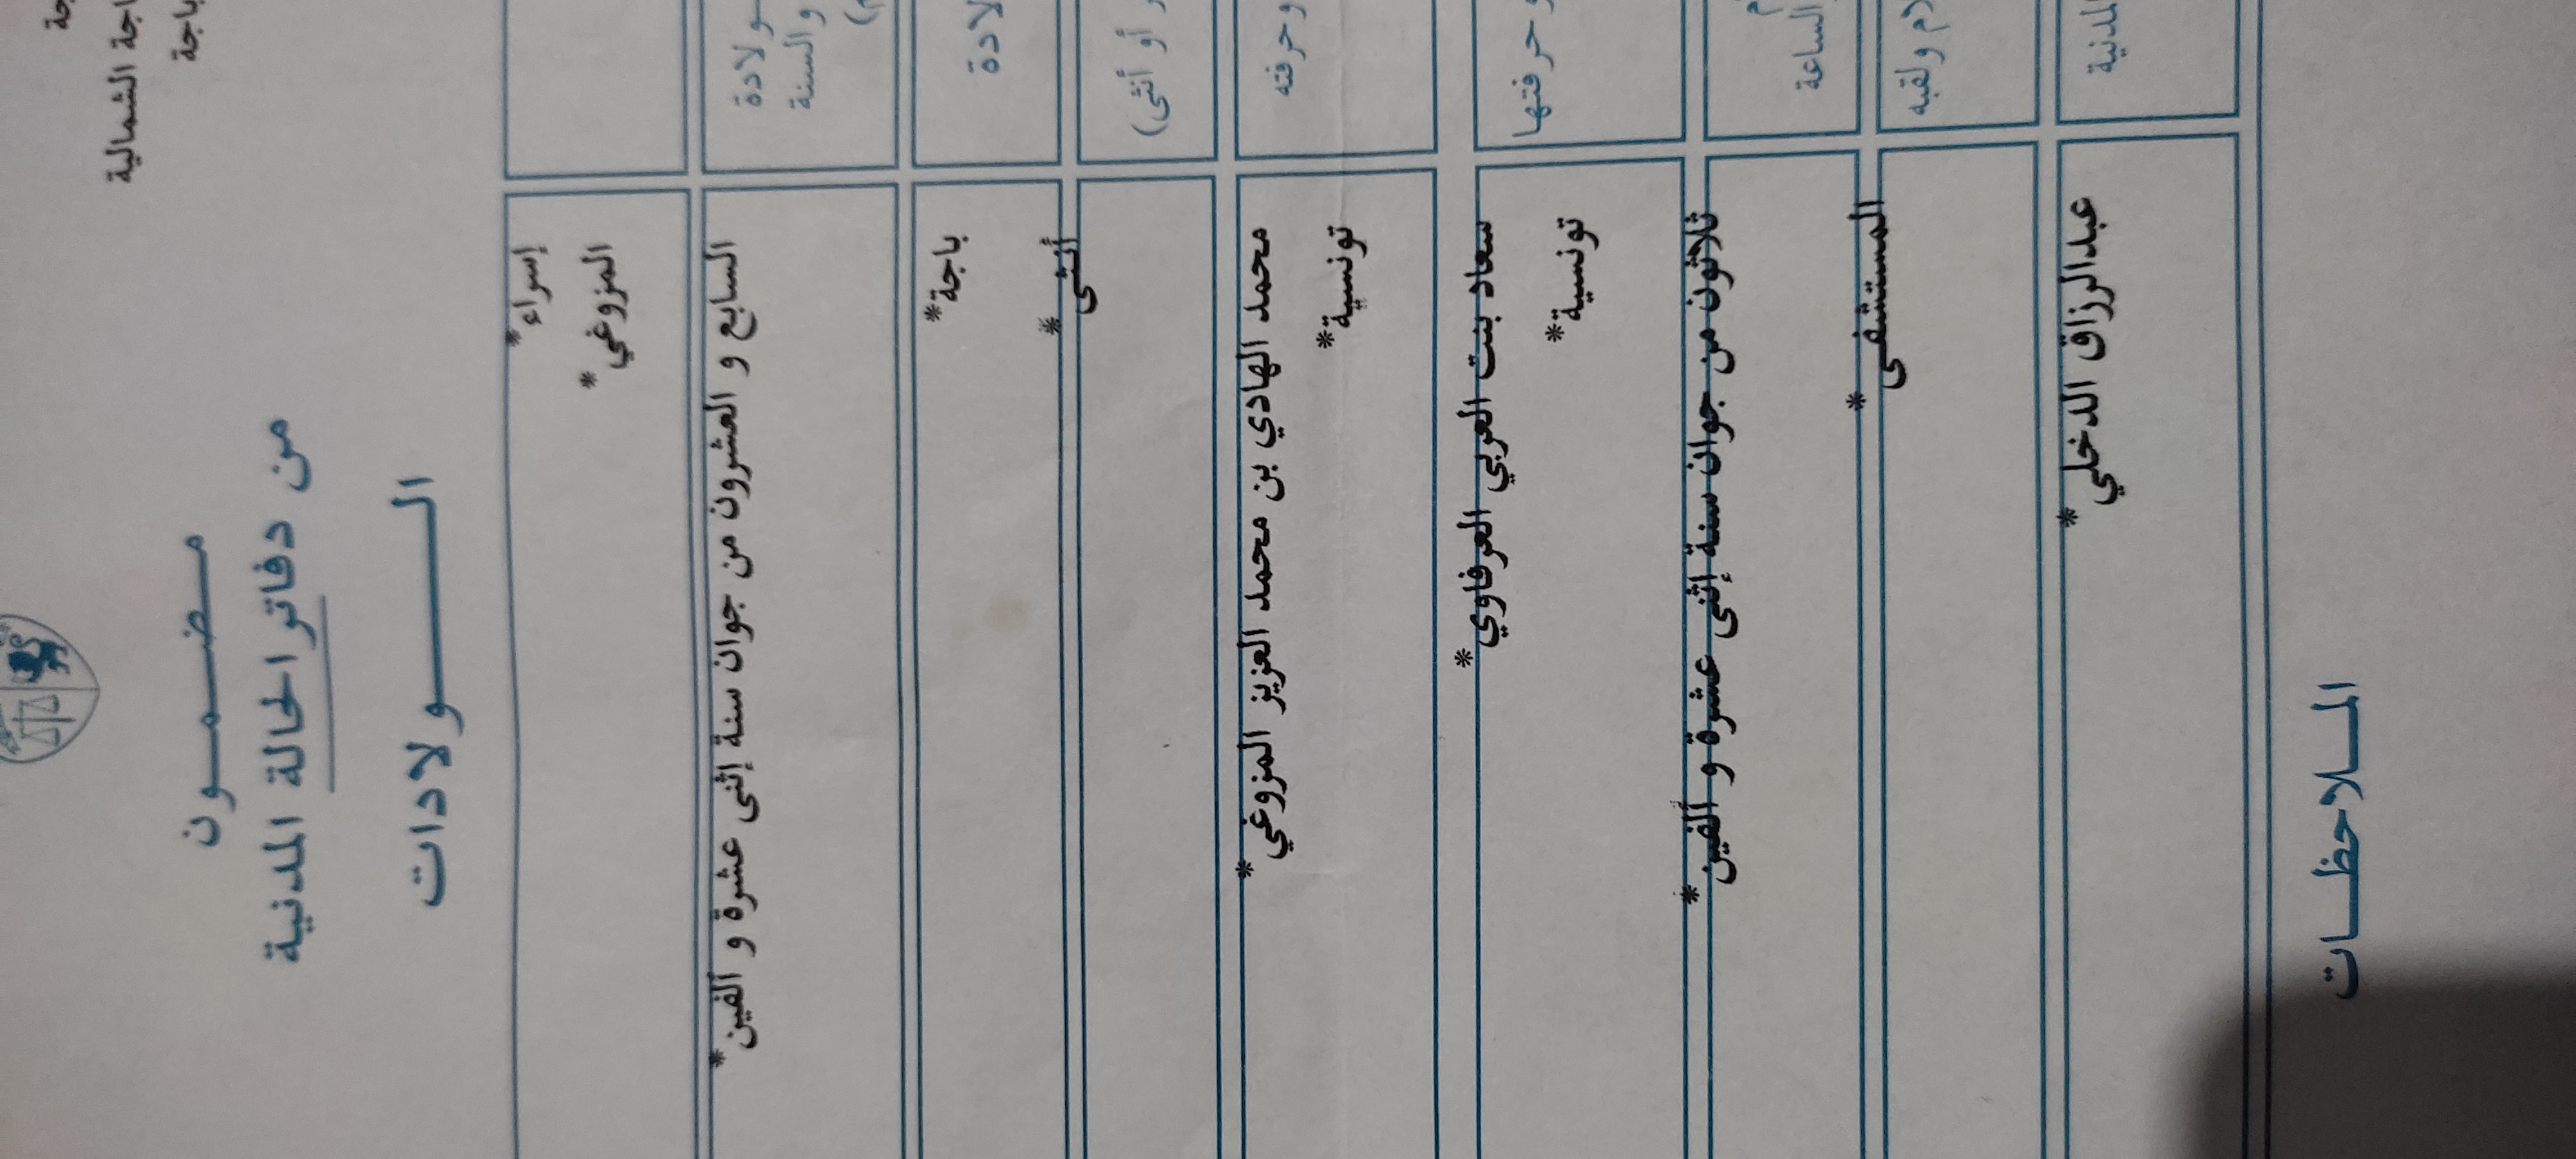 باجة الشمالية
باجة
مضمون
من دفاتر الحالة المدنية
الولادات
إسراء*
المزوغي*
ولادة
والسنة
السابع و العشرون من جوان سنة إثنى عشرة و ألفين*
باجة*
أو أنثى)
أنثى*
وحرفته
محمد الهادي بن محمد العزيز المزوغي*
تونسية*
وحرفتها
سعاد بنت العربي العرفاوي*
تونسية*
الساعة
ثلاثون من جوان سنة إثنى عشرة و ألفين*
ولقبه
المستشفى*
المدنية
عبدالرزاق الدخلي*
الملاحظات